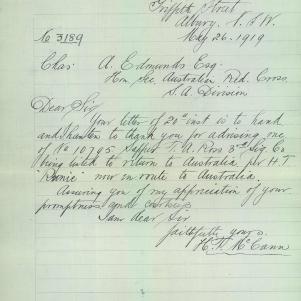 Griffith Street
Albury. N.S.W.
No 3189
May 26. 1919
Chas A. Edmunds Esq.
Hon Sec Australian Red Cross
S.A. Division
Dear Sir
Your letter of 20th inst is to hand
and hasten to thank you for advising me
of No 10795 Sapper T. A. Ross 3rd Sig Co
being listed to return to Australia per H T
"Runic" now en route to Australia.
Assuring you of my appreciation of your
promptness and courtesy
I am dear Sir
faithfully yours
H. F. McCann